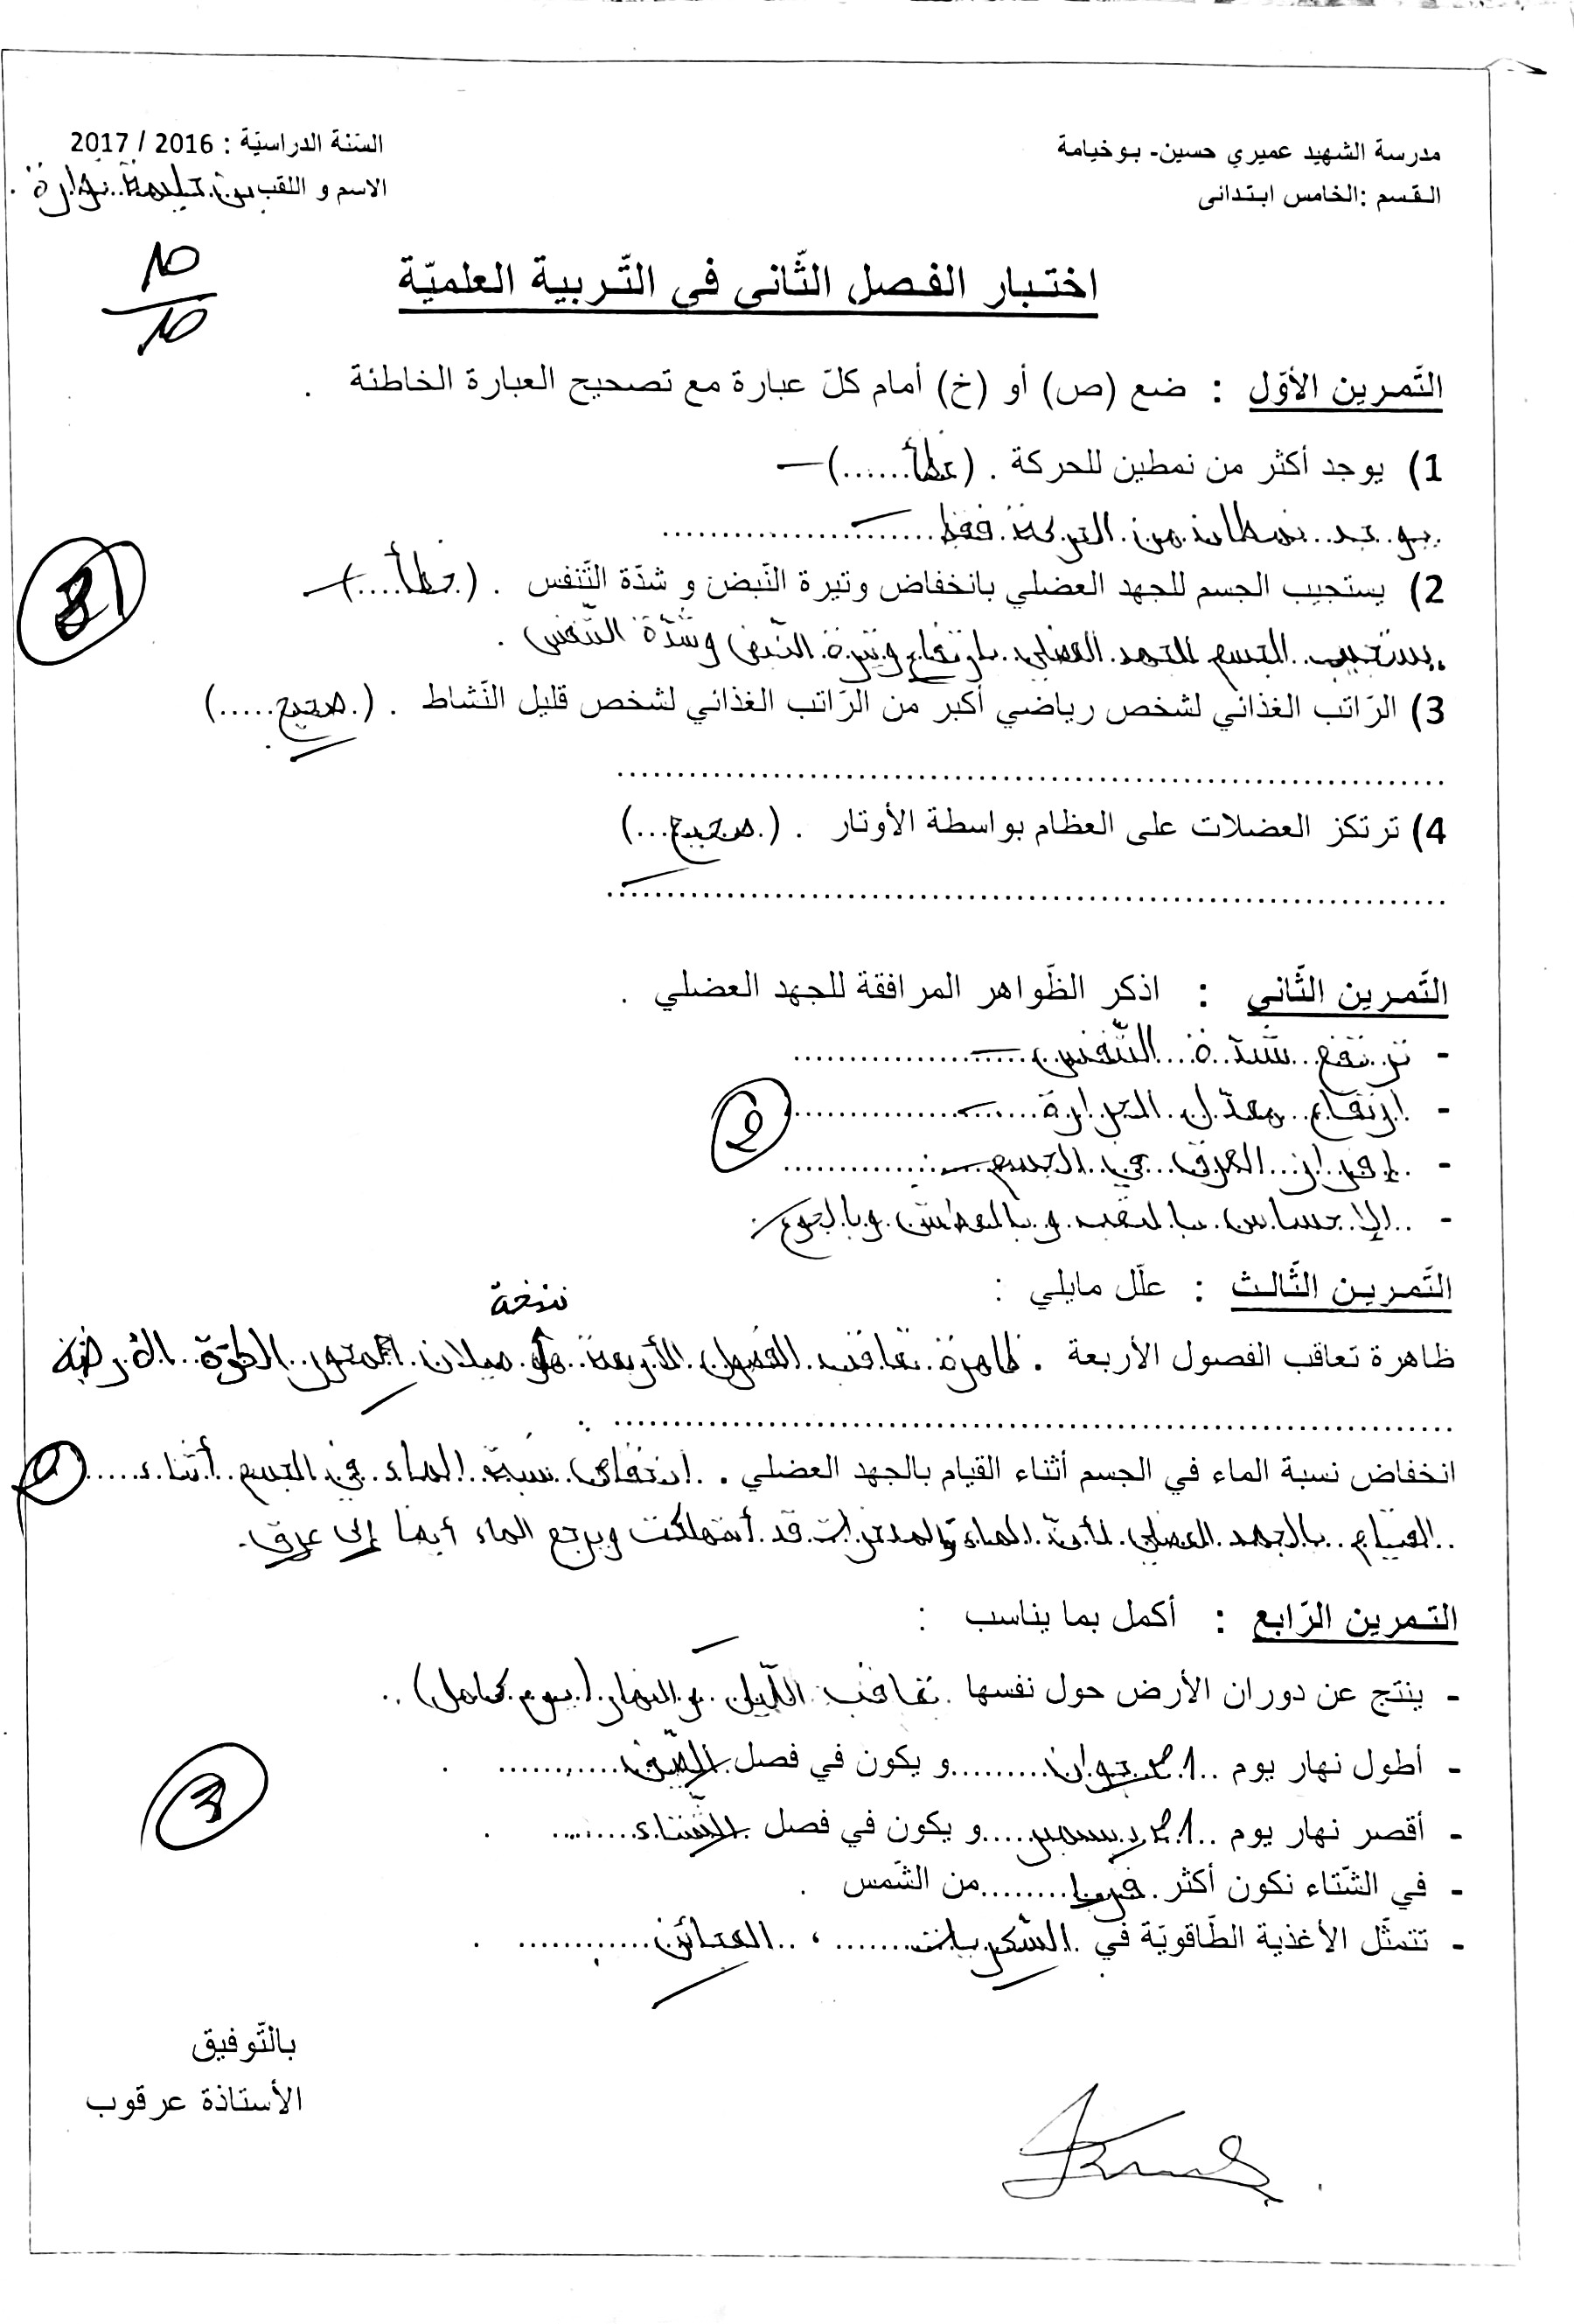 مدرسة الشهيد عميري حسين- بوخيامة
السّنة الدراسيّة : 2016 / 2017
القسم :الخامس ابتدائي
الاسم و اللقب بن حليمة نوارة
10
10
اختبار الفصل الثّاني في التّربية العلميّة
التّمرين الأوّل : ضع (ص) أو (خ) أمام كلّ عبارة مع تصحيح العبارة الخاطئة .
1) يوجد أكثر من نمطين للحركة . (خطأ......)
يوجد نمطان من الحركة فقط
3
2) يستجيب الجسم للجهد العضلي بانخفاض وتيرة النّبض و شدّة التّنفس . (خطأ....)
يستجيب الجسم للجهد العضلي بارتفاع وتيرة النّبض وشدّة التّنفس .
3) الرّاتب الغذائي لشخص رياضي أكبر من الرّاتب الغذائي لشخص قليل النّشاط . (صحيح.....)
4) ترتكز العضلات على العظام بواسطة الأوتار . (صحيح...)
التّمرين الثّاني : اذكر الظّواهر المرافقة للجهد العضلي .
- ترتفع شدّة التّنفس
- ارتفاع معدّل الحرارة
2
- إفراز العرق في الجسم
- الإحساس بالتعب و بالعطش وبالجوع
التّمرين الثّالث : علّل مايلي :
نتيجة
ظاهرة تعاقب الفصول الأربعة . ظاهرة تعاقب الفصول الأربعة هو ميلان المحور الكرة الأرضية
انخفاض نسبة الماء في الجسم أثناء القيام بالجهد العضلي . انخفاض نسبة الماء في الجسم أثناء
2
القيام بالجهد العضلي لأنّ الماء والمدخرات قد أستهلكت ويرجع الماء أيضا إلى عرق.
التمرين الرّابع : أكمل بما يناسب :
- ينتج عن دوران الأرض حول نفسها تعاقب اللّيل و النهار (يوم كامل)
- أطول نهار يوم 21 جوان و يكون في فصل الصّيف .
3
- أقصر نهار يوم 21 ديسمبر و يكون في فصل الشّتاء .
- في الشّتاء نكون أكثر قربا من الشّمس .
- تتمثّل الأغذية الطّاقويّة في السّكريات ، العجائن .
بالتّوفيق
الأستاذة عرقوب